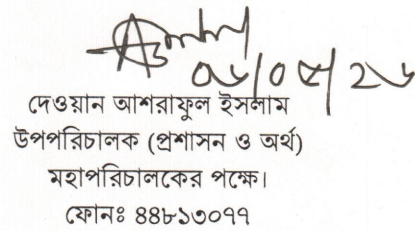 ০৬/০৫/২৬
দেওয়ান আশরাফুল ইসলাম
উপপরিচালক (প্রশাসন ও অর্থ)
মহাপরিচালকের পক্ষে।
ফোনঃ ৪৪৮১৩০৭৭